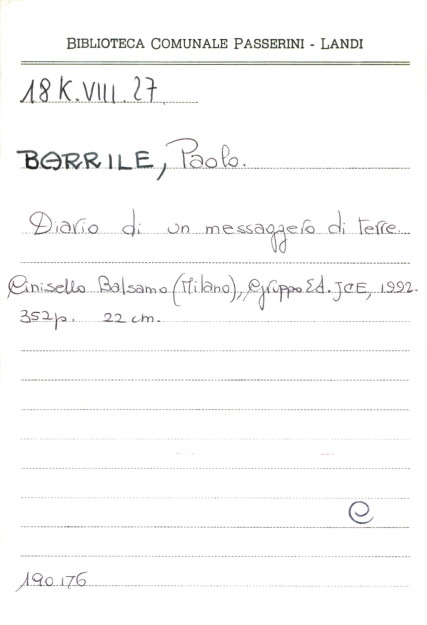 BIBLIOTECA COMUNALE PASSERINI - LANDI
18 K.VIII.27
BARRILE, Paolo.
Diario di un messaggero di terre...
Cinisello Balsamo (Milano), Gruppo Ed. JCE, 1992.
352p. 22 cm.
e
190.176